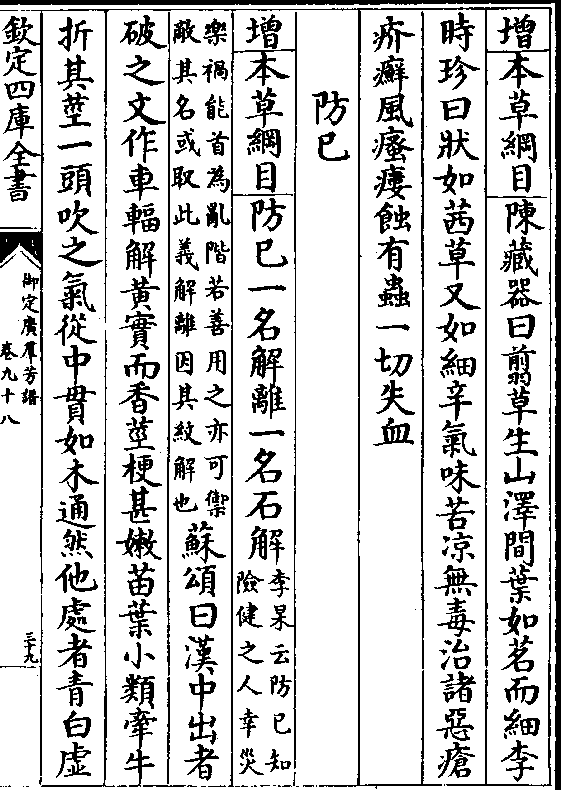 增本草綱目陳藏器曰翦草生山澤間葉如茗而細李
時珍曰狀如茜草又如細辛氣味苦凉無毒治諸惡瘡
疥癬風瘙瘻蝕有蟲一切失血
防己
增本草綱目防己一名解離一名石解李杲云防己知
險健之人幸災
樂禍能首為亂階若善用之亦可禦
敵其名或取此義解離因其紋解也蘇頌曰漢中出者
破之文作車輻解黃實而香莖梗甚嫩苗葉小類牽牛
折其莖一頭吹之氣從中貫如木通然他處者青白虛
欽定四庫全書
御定廣羣芳譜
卷九十八
三十九